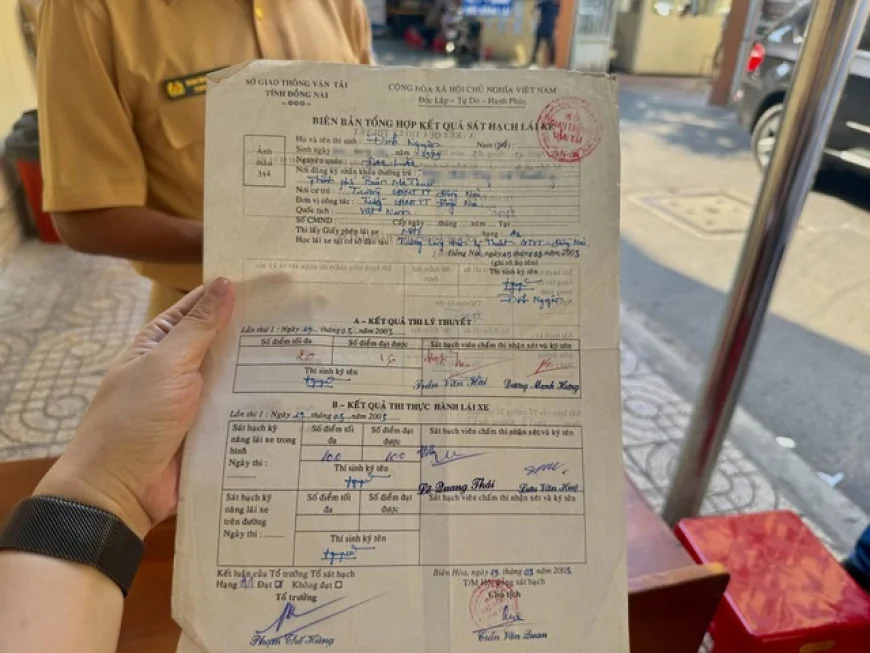 SỞ GIAO THÔNG VẬN TẢI
TỈNH ĐỒNG NAI
CỘNG HÒA XÃ HỘI CHỦ NGHĨA VIỆT NAM
Độc Lập – Tự Do – Hạnh Phúc
BIÊN BẢN TỔNG HỢP KẾT QUẢ SÁT HẠCH LÁI XE
Ảnh
màu
3x4
Họ và tên thí sinh : Đinh Nguyên Nam (Nữ) :
Sinh ngày năm 1979
Nguyên quán:
Nơi đăng ký nhân khẩu thường trú :
Thành phố Buôn Ma Thuột
Nơi cư trú : Trường Đồng Nai
Đơn vị công tác : Đồng Nai
Quốc tịch : Việt Nam
Số CMND: Cấp ngày tháng năm Tại
Thi lấy Giấy phép lái xe hạng : A2
Học lái xe tại cơ sở đào tạo : Trường Kỹ Thuật GTVT - Đồng Nai
Đồng Nai, ngày 03 tháng 03 năm 2003
(ghi rõ họ tên)
Thí sinh ký tên
Đinh Nguyên
A – KẾT QUẢ THI LÝ THUYẾT
Lần thứ 1 : Ngày 19 tháng 03 năm 2003
Số điểm tối đa Số điểm đạt được Sát hạch viên chấm thi nhận xét và ký tên
20 16
Thí sinh ký tên
Trần Văn Hải Dương Mạnh Hùng
B – KẾT QUẢ THI THỰC HÀNH LÁI XE
Lần thứ 1 : Ngày 19 tháng 03 năm 2003
Sát hạch kỹ năng lái xe trong hình
Ngày thi :
Số điểm tối đa Số điểm đạt được Sát hạch viên chấm thi nhận xét và ký tên
100 100
Thí sinh ký tên
Lê Quang Thái Lưu Văn Huệ
Sát hạch kỹ năng lái xe trên đường
Ngày thi :
Số điểm tối đa Số điểm đạt được Sát hạch viên chấm thi nhận xét và ký tên
Thí sinh ký tên
Kết luận của Tổ trưởng Tổ sát hạch
Hạng A2 Đạt Không đạt
Tổ trưởng
Phạm Chế Hùng
Biên Hòa, ngày 19 tháng 03 năm 2003
T/M Hội đồng sát hạch
Chủ tịch
Trần Văn Quan